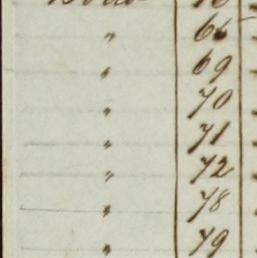 " 65
" 69
" 70
" 71
" 72
" 78
" 79